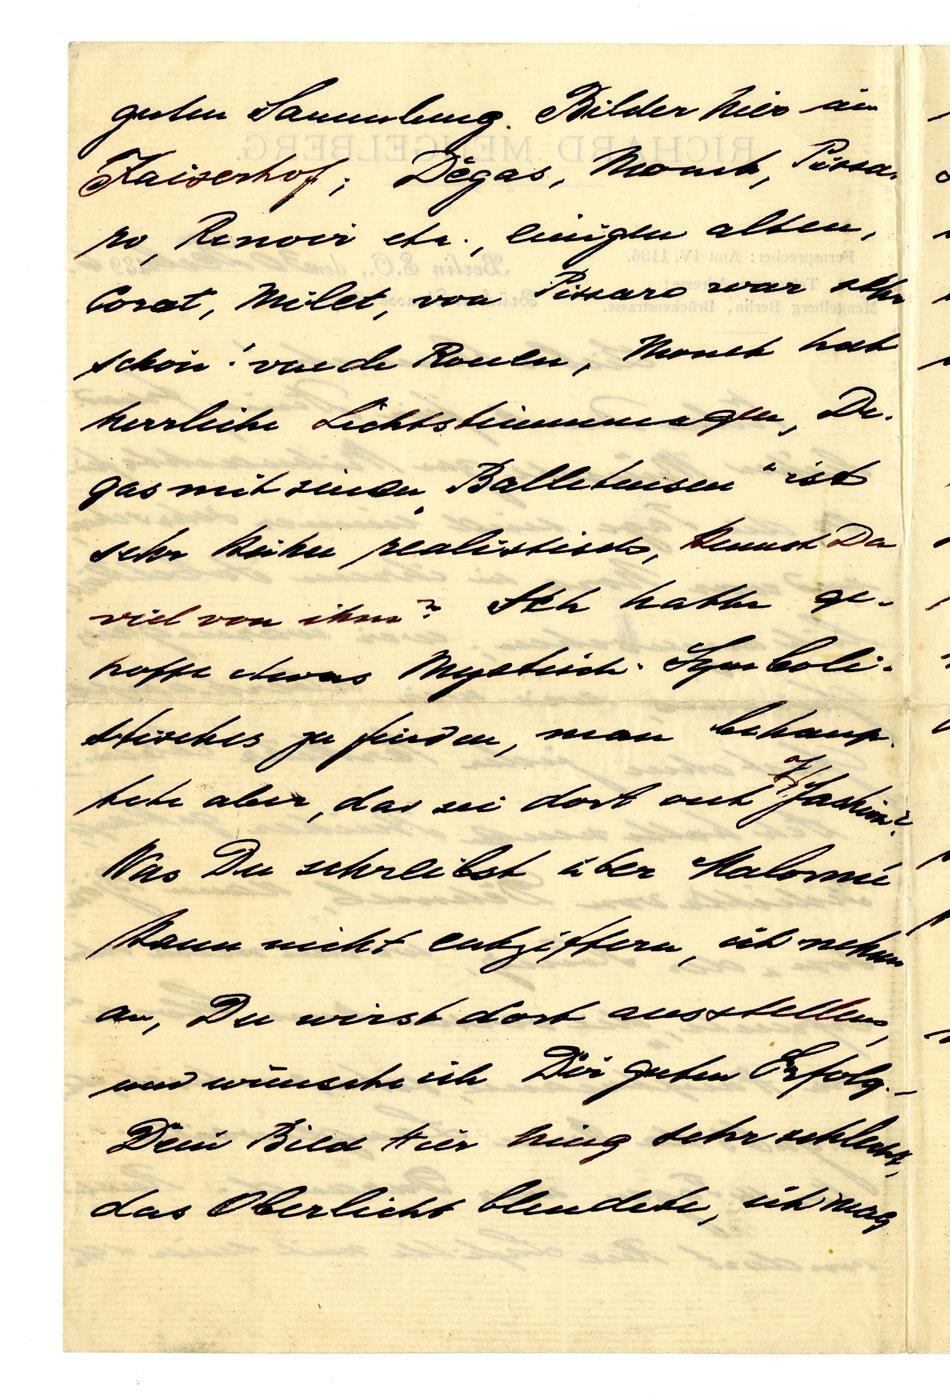 guten Sammlung. Bilder hier im
Kaiserhof; Dégas, Monet, Pissa-
ro, Renoir etc., einigen alten,
Corot, Milet, von Pissaro war sehr
schön! vue de Rouen, Monet hat
herrliche Lichtstimmungen, De-
gas mit seinen „Balleteusen" ist
sehr realistisch, kennst Du
viel von ihm? Ich hatte ge-
hofft etwas Mystisch-Symboli-
stisches zu finden, man behaup-
tete aber, das sei dort out
Was Du schreibst über
kann nicht entziffern, ich nehme
an, Du wirst dort ausstellen,
und wünsche ich Dir guten Erfolg. –
Dein Bild hier hing sehr schlecht,
das Oberlicht blendete, ich mag
RICHARD MENGELBERG.
Fernsprecher: Amt IV, 1186.
Mengelberg Berlin, Brückenstrasse.
Berlin S.O., den